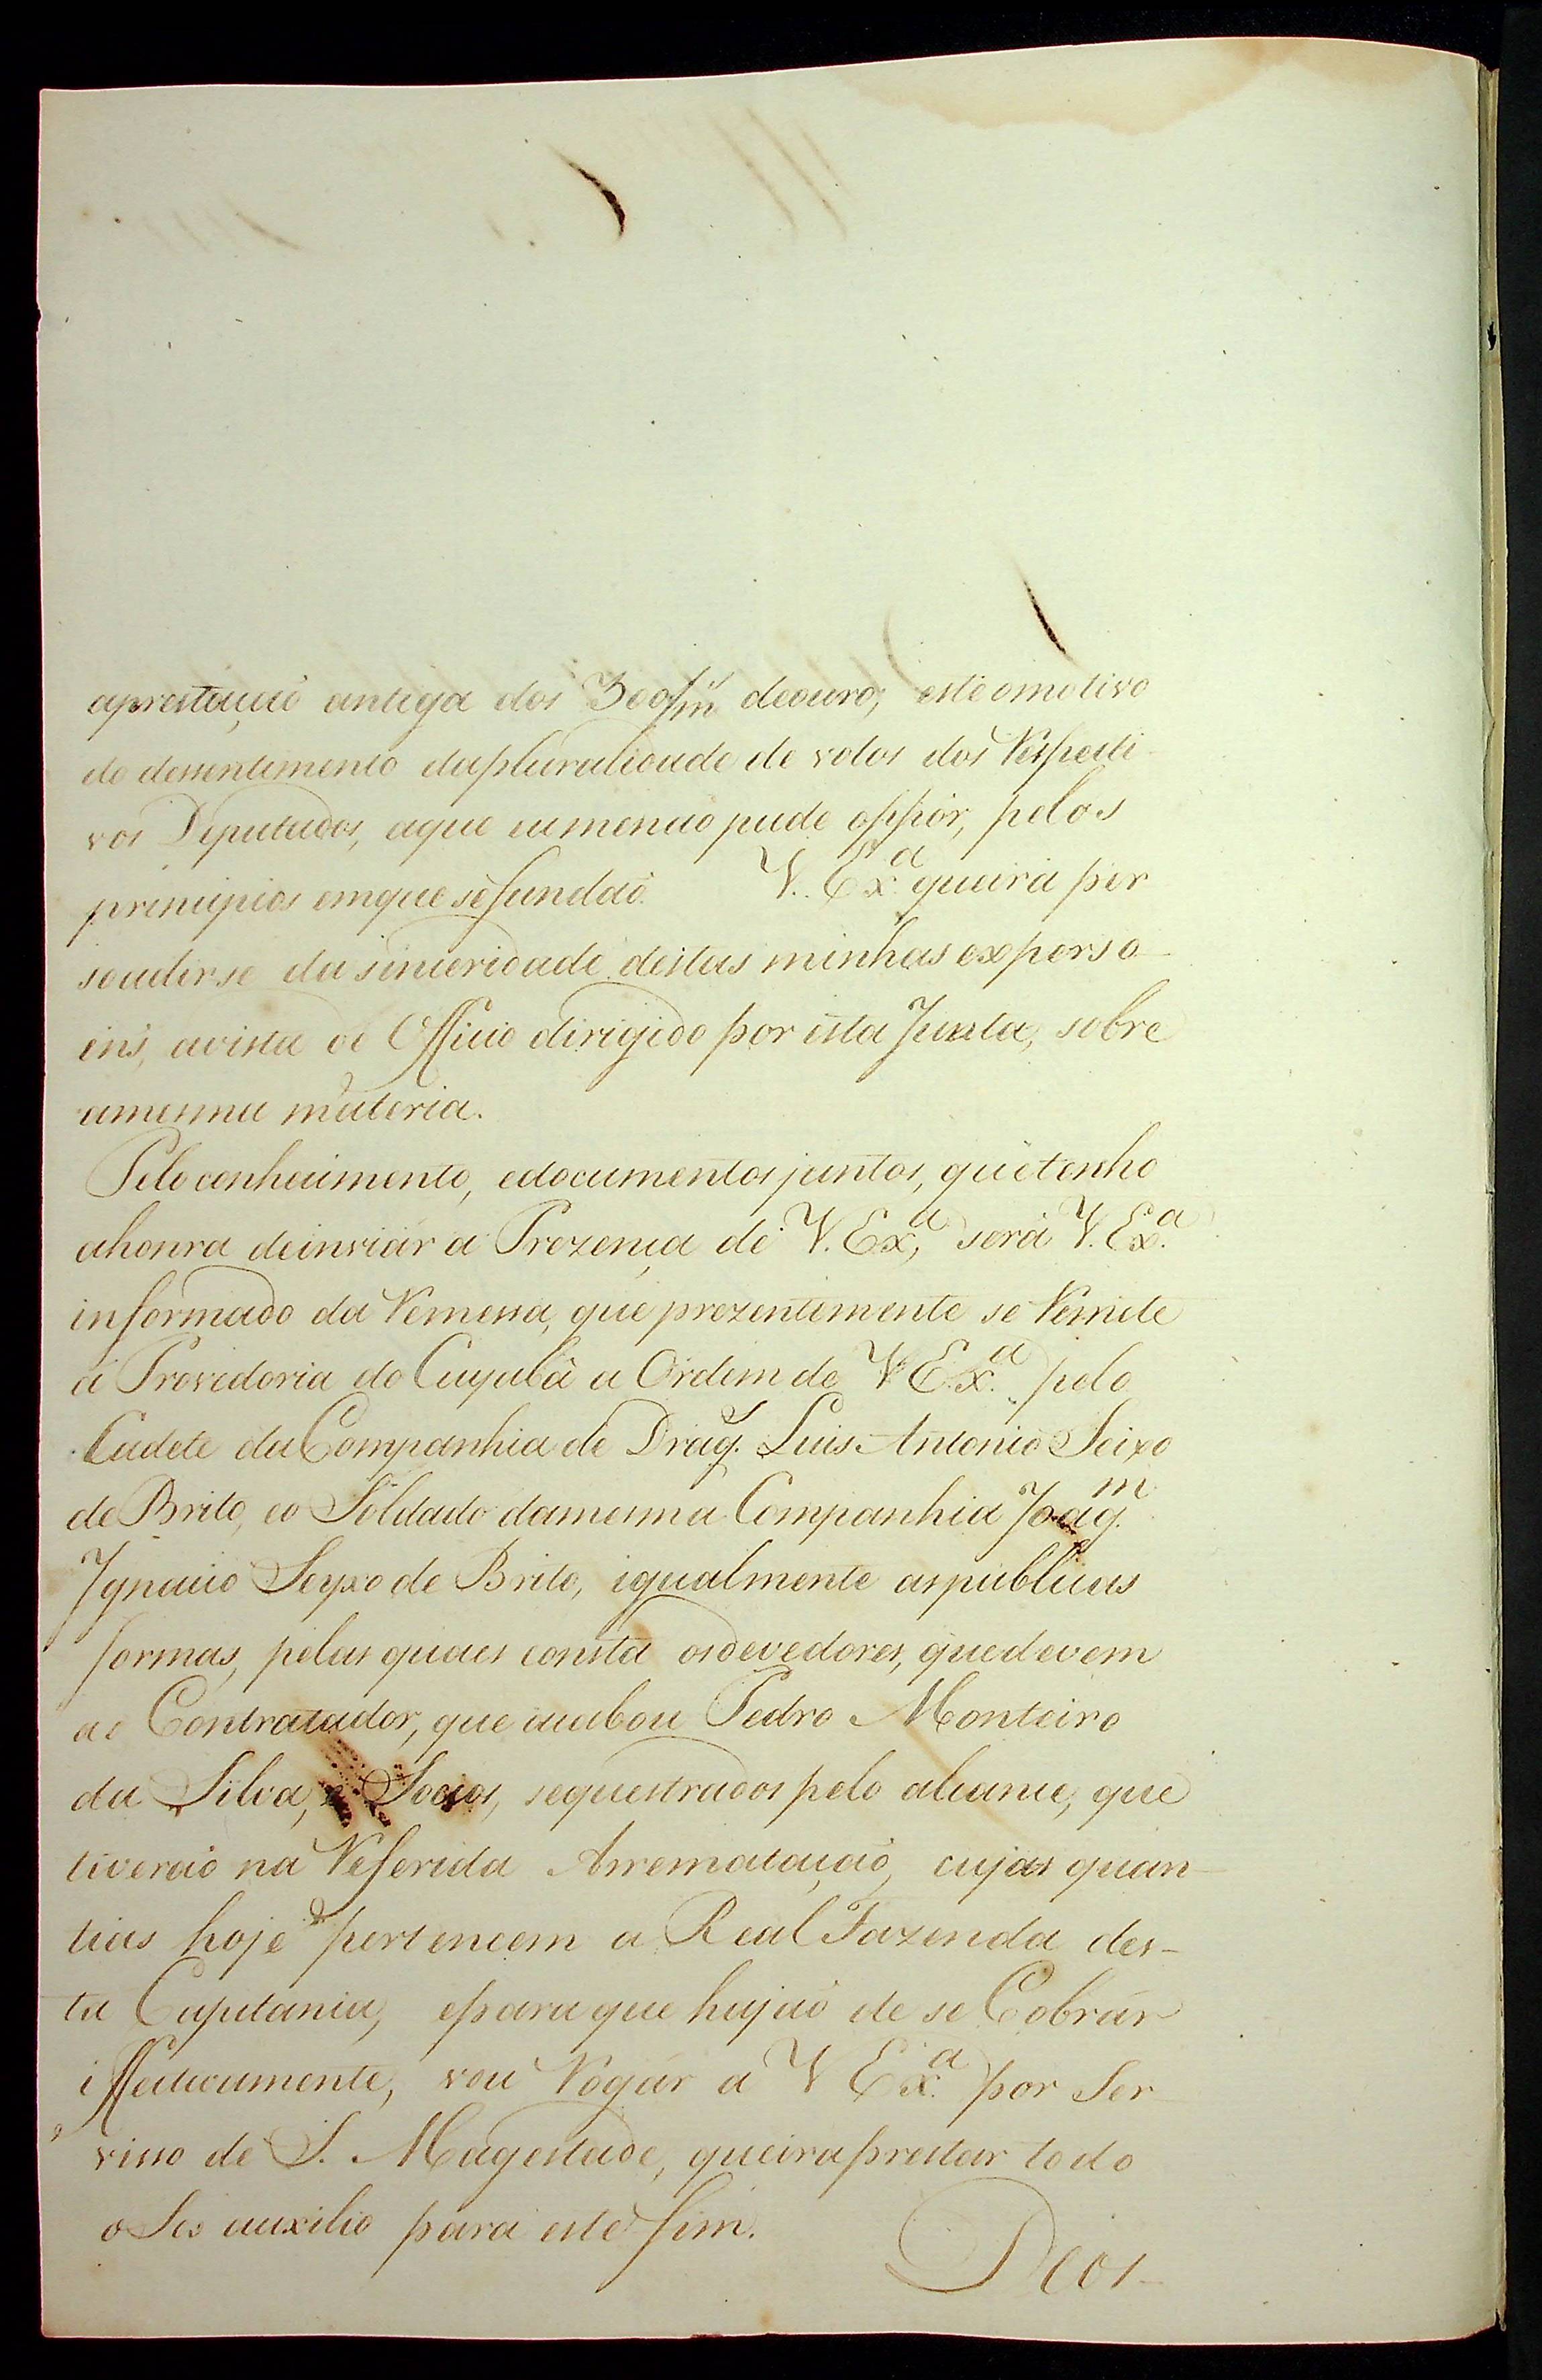 aprestação antiga dos 300/m/8ª deouro; este omotivo
do dessentimento dapluralidade de votos dos Respecti-
vos Deputados, aque eumenaõ pude oppôr, pelos
principios emque sefundaõ. V. Exª queira per
soadirse da sinceridade destas minhas exporso-
ens, avista do Officio dirigido por esta Junta, sobre
amesma materia.
Pelo conhecimento, edocumentos juntos, que tenho
ahonra deinviár a Prezença de V. Exª, será V. Exª
informado da Remessa, que prezentemente se Remete
á Provedoria do Cuyabâ a Ordem de V. Exª pelo
Cadete da Companhia de Drag.s Luis Antonio Seixo
de Brito, eo Soldado damesma Companhia Joaq.m
Ignacio Seyxo de Brito, igualmente aspublicas
formas, pelas quaes consta osdevedores, quedevem
ao Contratador, que acabou Pedro Monteiro
da Silva, e Socios, sequestrados pelo alcance, que
tiveraõ na Referida Arremataçaõ, cujas quan-
tias hoje pertencem a Real Fazenda des-
ta Capitania, epara que hajaõ de se Cobrár
effectivamente, vou Rogár a V Exª por Ser
visso de S. Magestade, queira prestar todo
o Seo auxilio para este fim.
Deos